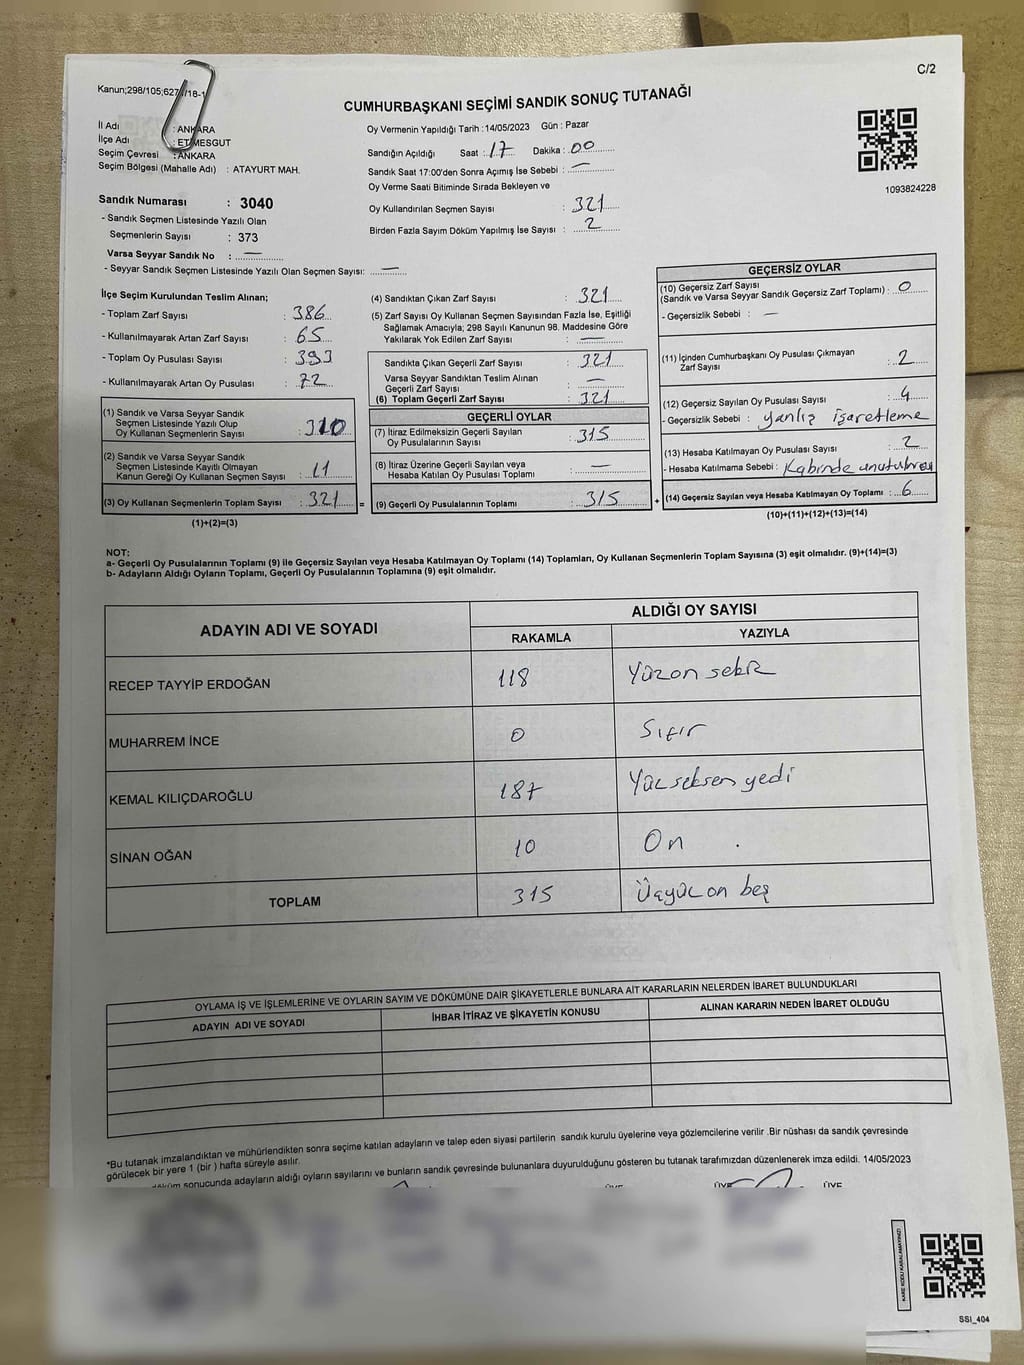 C/2
Kanun;298/105;627 /18-1
CUMHURBAŞKANI SEÇİMİ SANDIK SONUÇ TUTANAĞI
İl Adı : ANKARA
İlçe Adı : ETİMESGUT
Seçim Çevresi : ANKARA
Seçim Bölgesi (Mahalle Adı) : ATAYURT MAH.
Oy Vermenin Yapıldığı Tarih :14/05/2023 Gün : Pazar
Sandığın Açıldığı Saat : 17 Dakika : 00
Sandık Saat 17:00'den Sonra Açımış İse Sebebi : —
Oy Verme Saati Bitiminde Sırada Bekleyen ve
Oy Kullandırılan Seçmen Sayısı : 321
Birden Fazla Sayım Döküm Yapılmış İse Sayısı : 2
1093824228
Sandık Numarası : 3040
- Sandık Seçmen Listesinde Yazılı Olan
Seçmenlerin Sayısı : 373
Varsa Seyyar Sandık No : —
- Seyyar Sandık Seçmen Listesinde Yazılı Olan Seçmen Sayısı: —
İlçe Seçim Kurulundan Teslim Alınan;
- Toplam Zarf Sayısı : 386
- Kullanılmayarak Artan Zarf Sayısı : 65
- Toplam Oy Pusulası Sayısı : 393
- Kullanılmayarak Artan Oy Pusulası : 72
(1) Sandık ve Varsa Seyyar Sandık
Seçmen Listesinde Yazılı Olup
Oy Kullanan Seçmenlerin Sayısı : 310
(2) Sandık ve Varsa Seyyar Sandık
Seçmen Listesinde Kayıtlı Olmayan
Kanun Gereği Oy Kullanan Seçmen Sayısı : 11
(3) Oy Kullanan Seçmenlerin Toplam Sayısı : 321 =
(1)+(2)=(3)
(4) Sandıktan Çıkan Zarf Sayısı : 321
(5) Zarf Sayısı Oy Kullanan Seçmen Sayısından Fazla İse, Eşitliği
Sağlamak Amacıyla; 298 Sayılı Kanunun 98. Maddesine Göre
Yakılarak Yok Edilen Zarf Sayısı : —
Sandıkta Çıkan Geçerli Zarf Sayısı : 321
Varsa Seyyar Sandıktan Teslim Alınan
Geçerli Zarf Sayısı : —
(6) Toplam Geçerli Zarf Sayısı : 321
GEÇERLİ OYLAR
(7) İtiraz Edilmeksizin Geçerli Sayılan
Oy Pusulalarının Sayısı : 315
(8) İtiraz Üzerine Geçerli Sayılan veya
Hesaba Katılan Oy Pusulası Toplamı : —
(9) Geçerli Oy Pusulalarının Toplamı : 315 +
GEÇERSİZ OYLAR
(10) Geçersiz Zarf Sayısı
(Sandık ve Varsa Seyyar Sandık Geçersiz Zarf Toplamı) : 0
- Geçersizlik Sebebi : —
(11) İçinden Cumhurbaşkanı Oy Pusulası Çıkmayan
Zarf Sayısı : 2
(12) Geçersiz Sayılan Oy Pusulası Sayısı : 4
- Geçersizlik Sebebi : yanlış işaretleme
(13) Hesaba Katılmayan Oy Pusulası Sayısı : 2
- Hesaba Katılmama Sebebi : Kabinde
(14) Geçersiz Sayılan veya Hesaba Katılmayan Oy Toplamı : 6
(10)+(11)+(12)+(13)=(14)
NOT:
a- Geçerli Oy Pusulalarının Toplamı (9) ile Geçersiz Sayılan veya Hesaba Katılmayan Oy Toplamı (14) Toplamları, Oy Kullanan Seçmenlerin Toplam Sayısına (3) eşit olmalıdır. (9)+(14)=(3)
b- Adayların Aldığı Oyların Toplamı, Geçerli Oy Pusulalarının Toplamına (9) eşit olmalıdır.
ADAYIN ADI VE SOYADI
ALDIĞI OY SAYISI
RAKAMLA YAZIYLA
RECEP TAYYİP ERDOĞAN 118 Yüzon sekiz
MUHARREM İNCE 0 Sıfır
KEMAL KILIÇDAROĞLU 187 Yüz seksen yedi
SİNAN OĞAN 10 On
TOPLAM 315 Üçyüz on beş
OYLAMA İŞ VE İŞLEMLERİNE VE OYLARIN SAYIM VE DÖKÜMÜNE DAİR ŞİKAYETLERLE BUNLARA AİT KARARLARIN NELERDEN İBARET BULUNDUKLARI
ADAYIN ADI VE SOYADI İHBAR İTİRAZ VE ŞİKAYETİN KONUSU ALINAN KARARIN NEDEN İBARET OLDUĞU
*Bu tutanak imzalandıktan ve mühürlendikten sonra seçime katılan adayların ve talep eden siyasi partilerin sandık kurulu üyelerine veya gözlemcilerine verilir .Bir nüshası da sandık çevresinde
görülecek bir yere 1 (bir ) hafta süreyle asılır.
döküm sonucunda adayların aldığı oyların sayılarını ve bunların sandık çevresinde bulunanlara duyurulduğunu gösteren bu tutanak tarafımızdan düzenlenerek imza edildi. 14/05/2023
ÜYE ÜYE ÜYE
KARE KODU KARALAMAYINIZ!
SSI_404